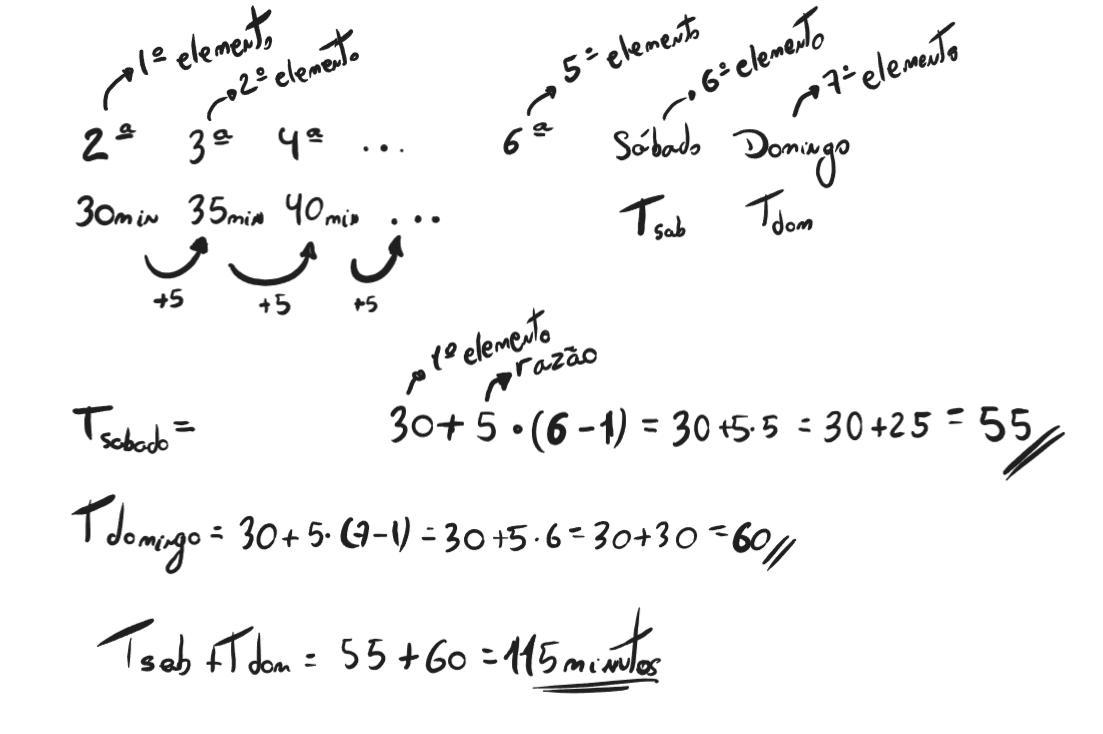 1º elemento
2º elemento
5º elemento
6º elemento
7º elemento
2ª 3ª 4ª ... 6ª Sábado Domingo
30min 35min 40min ... Tsab Tdom
+5 +5 +5
1º elemento
razão
Tsabado= 30+5•(6-1) = 30+5·5 = 30+25 = 55
Tdomingo = 30+5·(7-1) = 30+5·6 = 30+30 = 60
Tsab +Tdom = 55+60 = 115 minutos